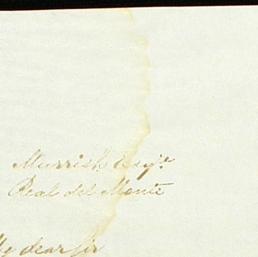 Murrish Esqre
Real del Monte
My dear Sir